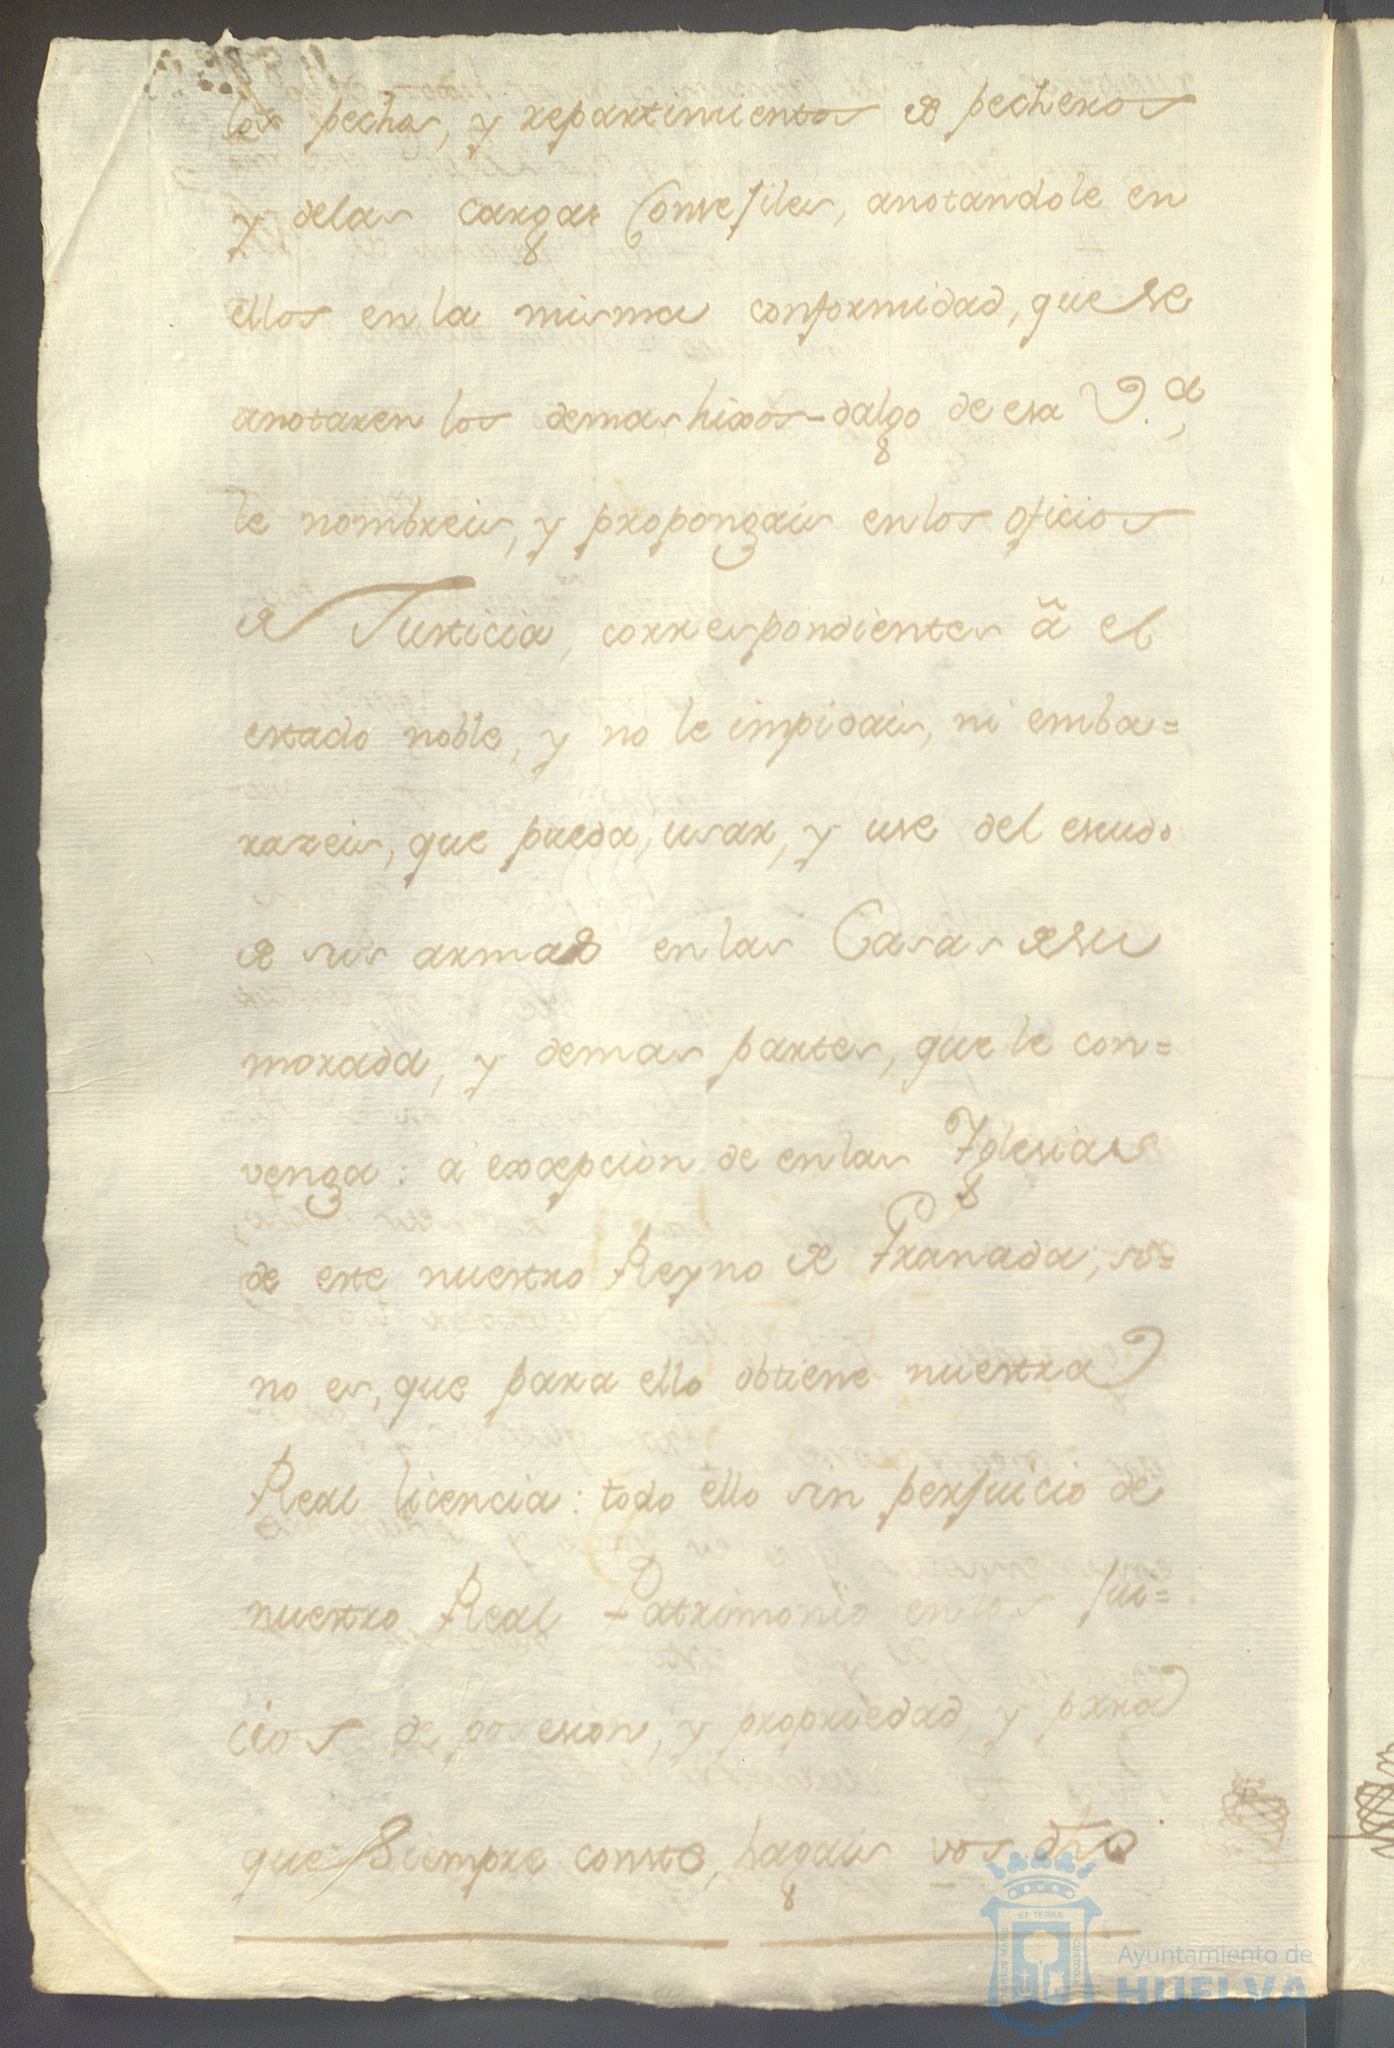 los pechos, y repartimientos de pecheros
y delas cargas Consejiles, anotandole en
ellos en la misma conformidad, que se
anotaren los demas hixos-dalgo de esa V.ª,
le nombreis, y propongais en los oficios
de Justicia, correspondientes à el
estado noble, y no le impidais, ni emba=
razeis, que pueda, usar, y use del escudo
de sus armas en las Casas de su
morada, y demas partes, que le con=
venga: à excepcion de en las Yglesias
de este nuestro Reyno de Granada, si=
no es, que para ello obtiene nuestra
Real licencia: todo ello sin perjuicio de
nuestro Real Patrimonio en los Jui=
cios de posesion, y propriedad, y para
que Siempre conste, hagais vos dho
PORTUS MARIS
ET TERRÆ
CUSTODIA
Ayuntamiento de
HUELVA